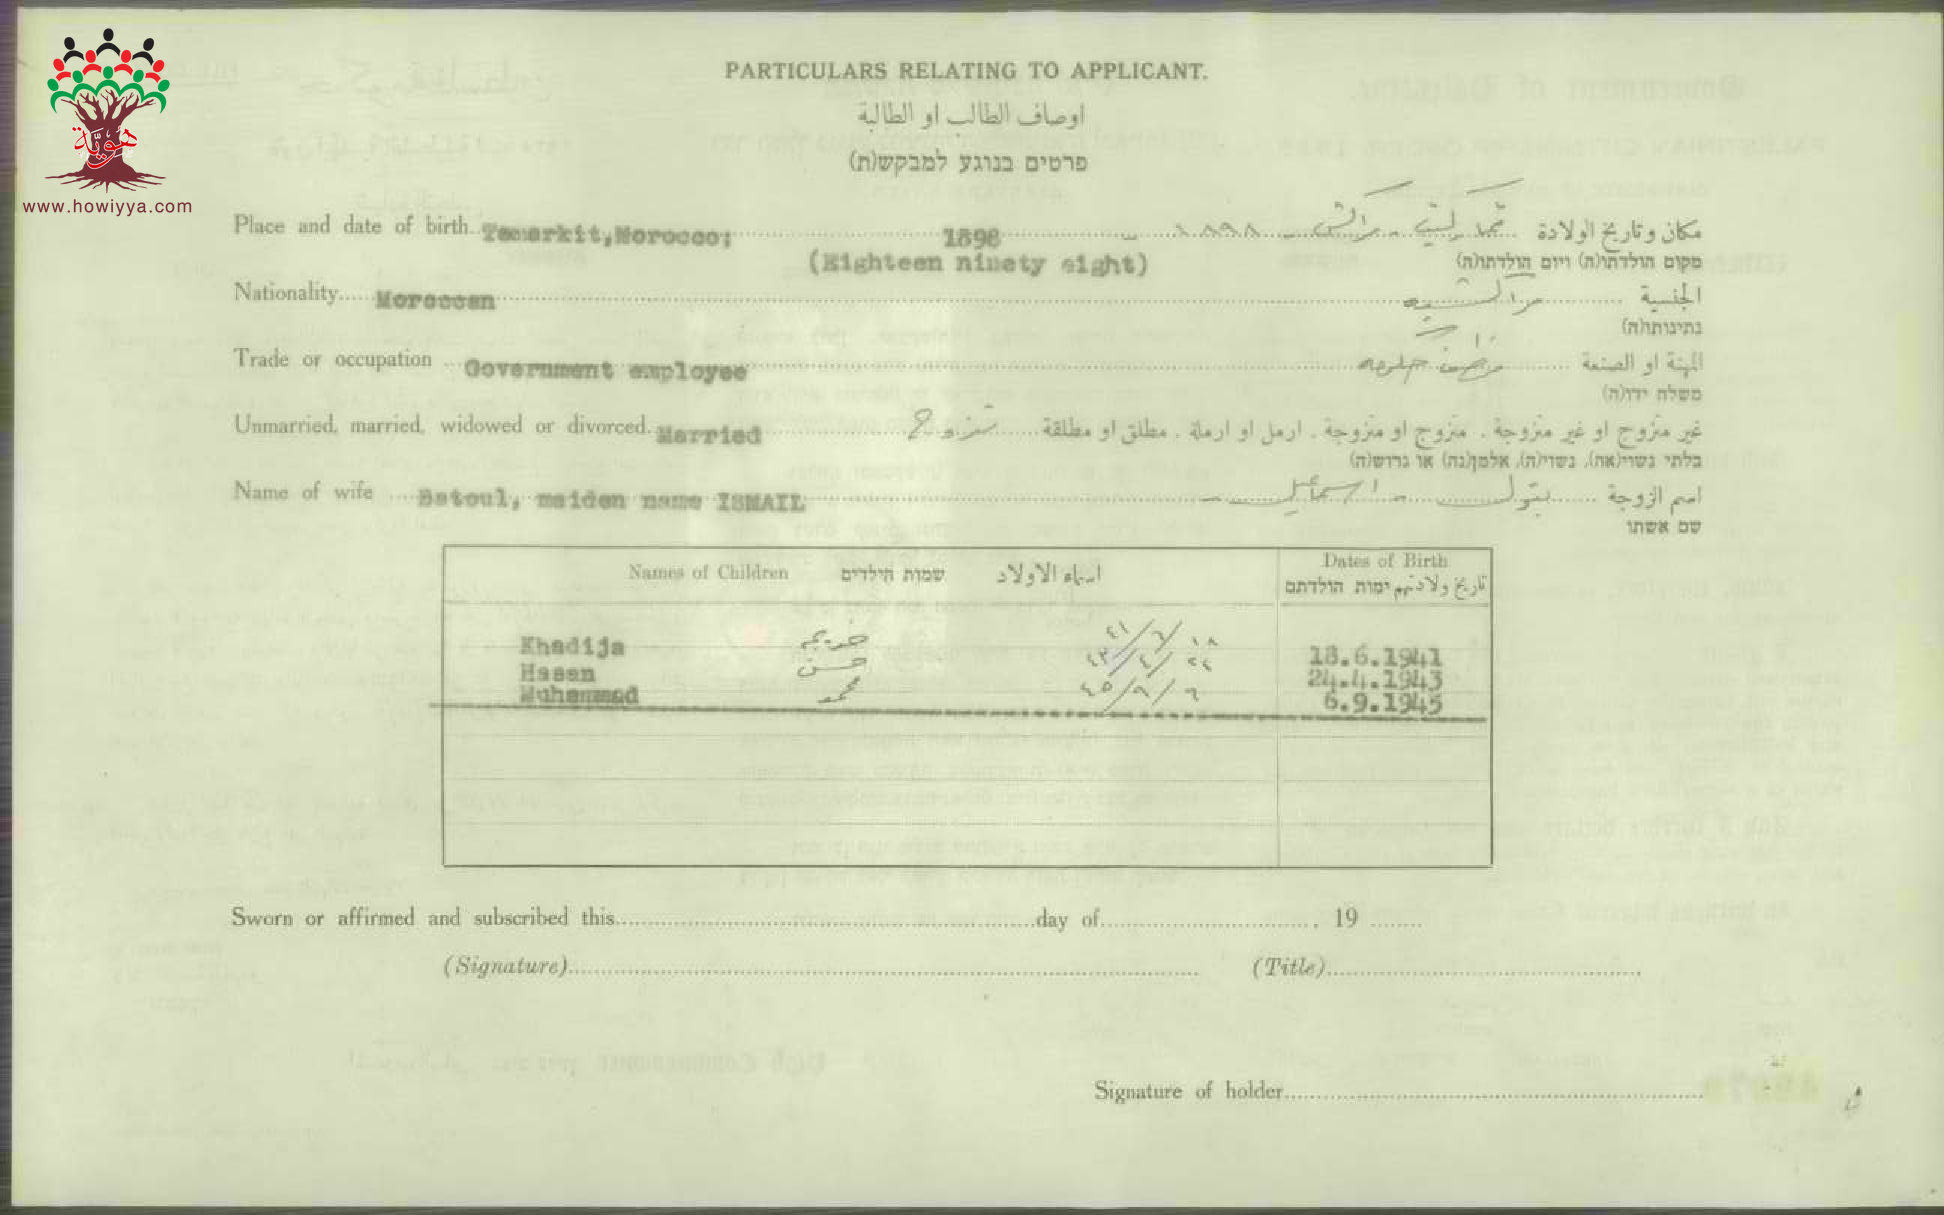 هوية
www.howiyya.com
PARTICULARS RELATING TO APPLICANT.
اوصاف الطالب او الطالبة
פרטים בנוגע למבקש(ת)
Place and date of birth Temerkit, Morocco; 1898 ١٨٩٨ مكان وتاريخ الولادة
(Eighteen ninety eight) מקום הולדתו(ה) ויום הולדתו(ה)
Nationality Moroccan مراكشيه الجنسية
נתינותו(ה)
Trade or occupation Government employee المهنة او الصنعة
משלח ידו(ה)
Unmarried, married, widowed or divorced. Married متزوج غير متزوج او غير متزوجة . متزوج او متزوجة . ارمل او ارملة . مطلق او مطلقة
בלתי נשוי(אה), נשוי(ה), אלמן(נה) או גרוש(ה)
Name of wife Batoul, maiden name ISMAIL بتول - اسماعيل - اسم الزوجة
שם אשתו
Names of Children שמות הילדים اسماء الاولاد Dates of Birth
تاريخ ولادتهم ימות הולדתם
Khadija خديجه ١٨/٦/٤١ 18.6.1941
Hasan حسن ٢٤/٤/٤٣ 24.4.1943
Muhammad محمد ٦/٩/٤٥ 6.9.1945
Sworn or affirmed and subscribed this day of , 19
(Signature) (Title)
Signature of holder